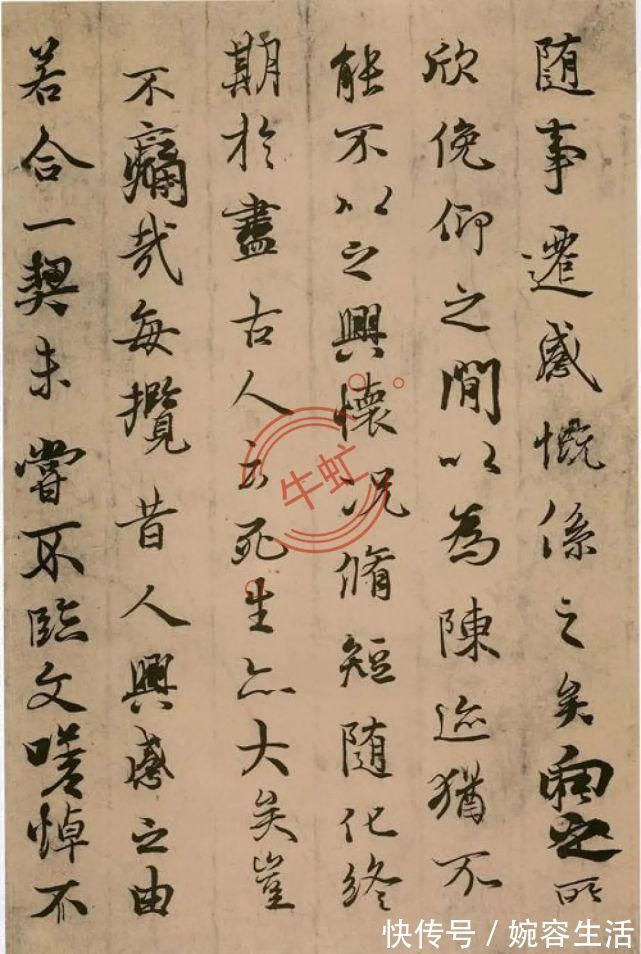 随事遷感慨係之矣向之所
欣俛仰之閒以為陳迹猶不
能不以之興懷况脩短随化終
期於盡古人云死生亦大矣豈
不痛哉每攬昔人興感之由
若合一契未嘗不臨文嗟悼不
牛虹
快传号／婉容生活